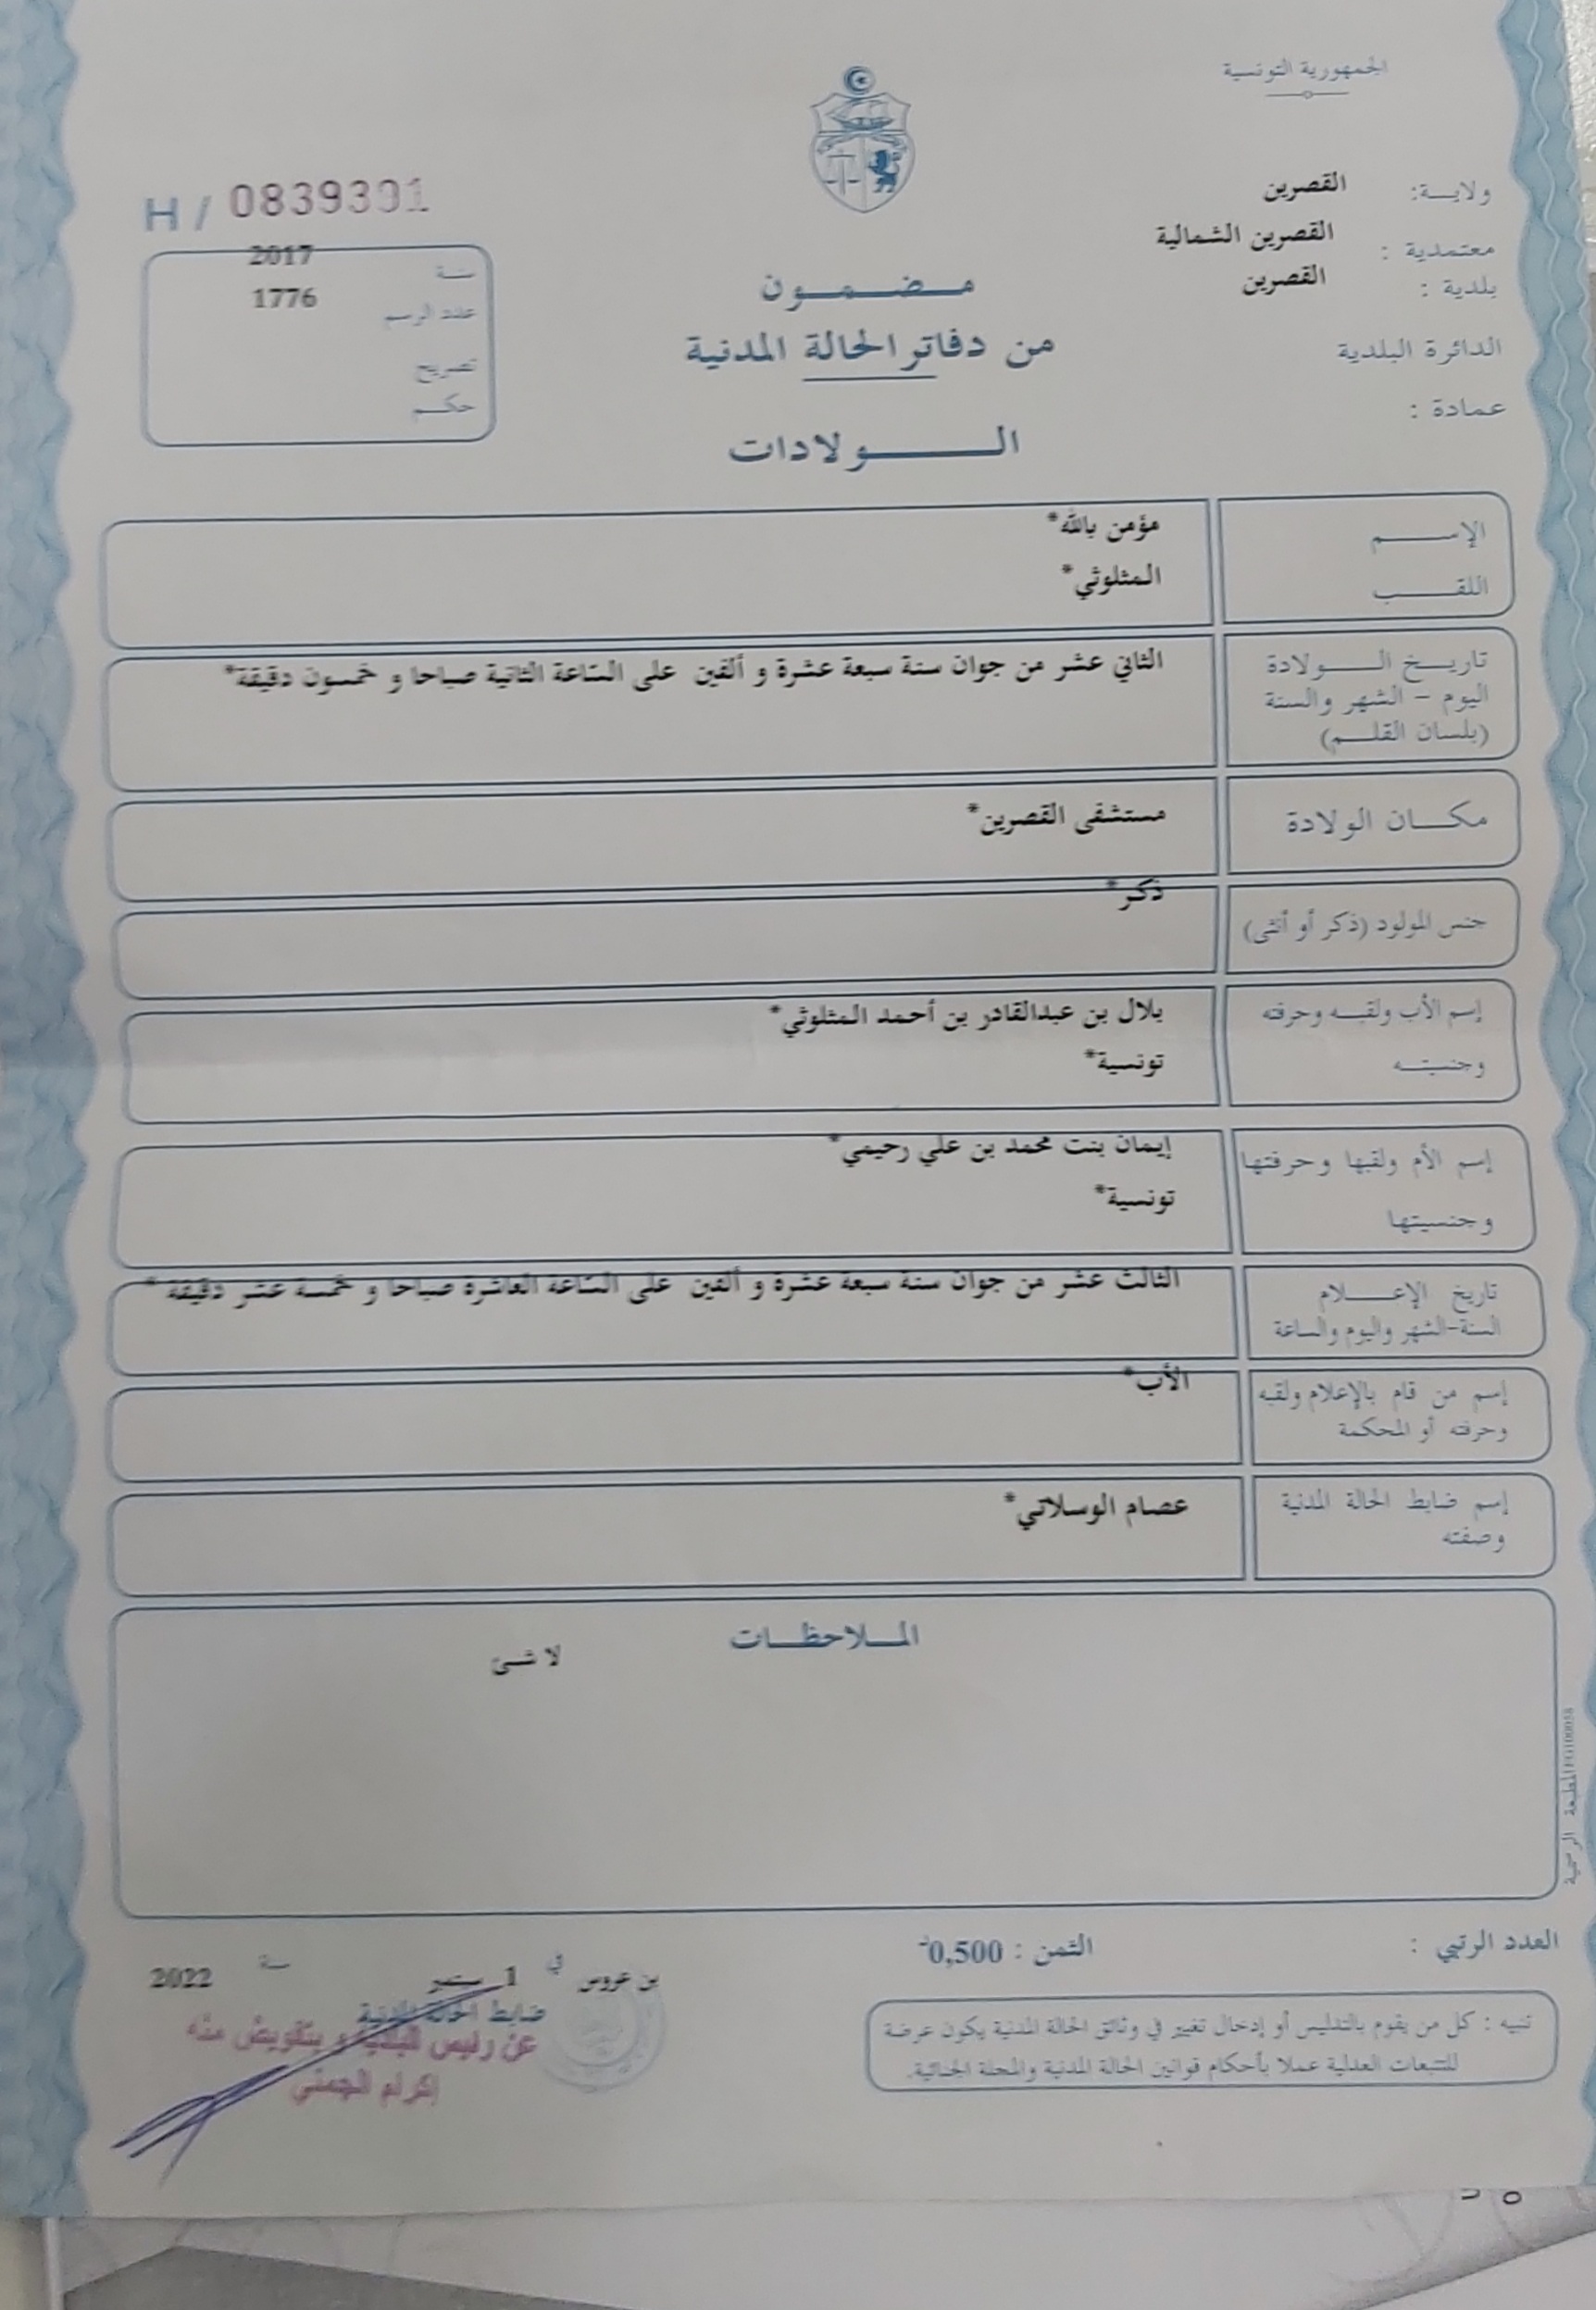 الجمهورية التونسية
ولايــة: القصرين
معتمدية : القصرين الشمالية
بلدية : القصرين
الدائرة البلدية
عمادة :
H / 0839301
سنة 2017
عدد الرسم 1776
تصريح
حكم
مضمون
من دفاتر الحالة المدنية
الولادات
الإسم مؤمن بالله*
اللقب المثلوثي*
تاريخ الولادة الثاني عشر من جوان سنة سبعة عشرة و ألفين على الساعة الثانية صباحا و خمسون دقيقة*
اليوم - الشهر والسنة
(بلسان القلم)
مكان الولادة مستشفى القصرين*
جنس المولود (ذكر أو أنثى) ذكر*
إسم الأب ولقبه وحرفته بلال بن عبدالقادر بن أحمد المثلوثي*
وجنسيته تونسية*
إسم الأم ولقبها وحرفتها إيمان بنت محمد بن علي رحيمي*
وجنسيتها تونسية*
تاريخ الإعلام الثالث عشر من جوان سنة سبعة عشرة و ألفين على الساعة العاشرة صباحا و خمسة عشر دقيقة *
السنة-الشهر واليوم والساعة
إسم من قام بالإعلام ولقبه الأب*
وحرفته أو المحكمة
إسم ضابط الحالة المدنية عصام الوسلاتي*
وصفته
الملاحظات
لا شئ
المطبعة الرسمية
العدد الرتبي :
الثمن : 0,500د
بن عروس في 1 سبتمبر سنة 2022
ضابط الحالة المدنية
عن رئيس البلدية و بتفويض منه
إكرام الجمني
تنبيه : كل من يقوم بالتدليس أو إدخال تغيير في وثائق الحالة المدنية يكون عرضة
للتتبعات العدلية عملا بأحكام قوانين الحالة المدنية والمجلة الجنائية.